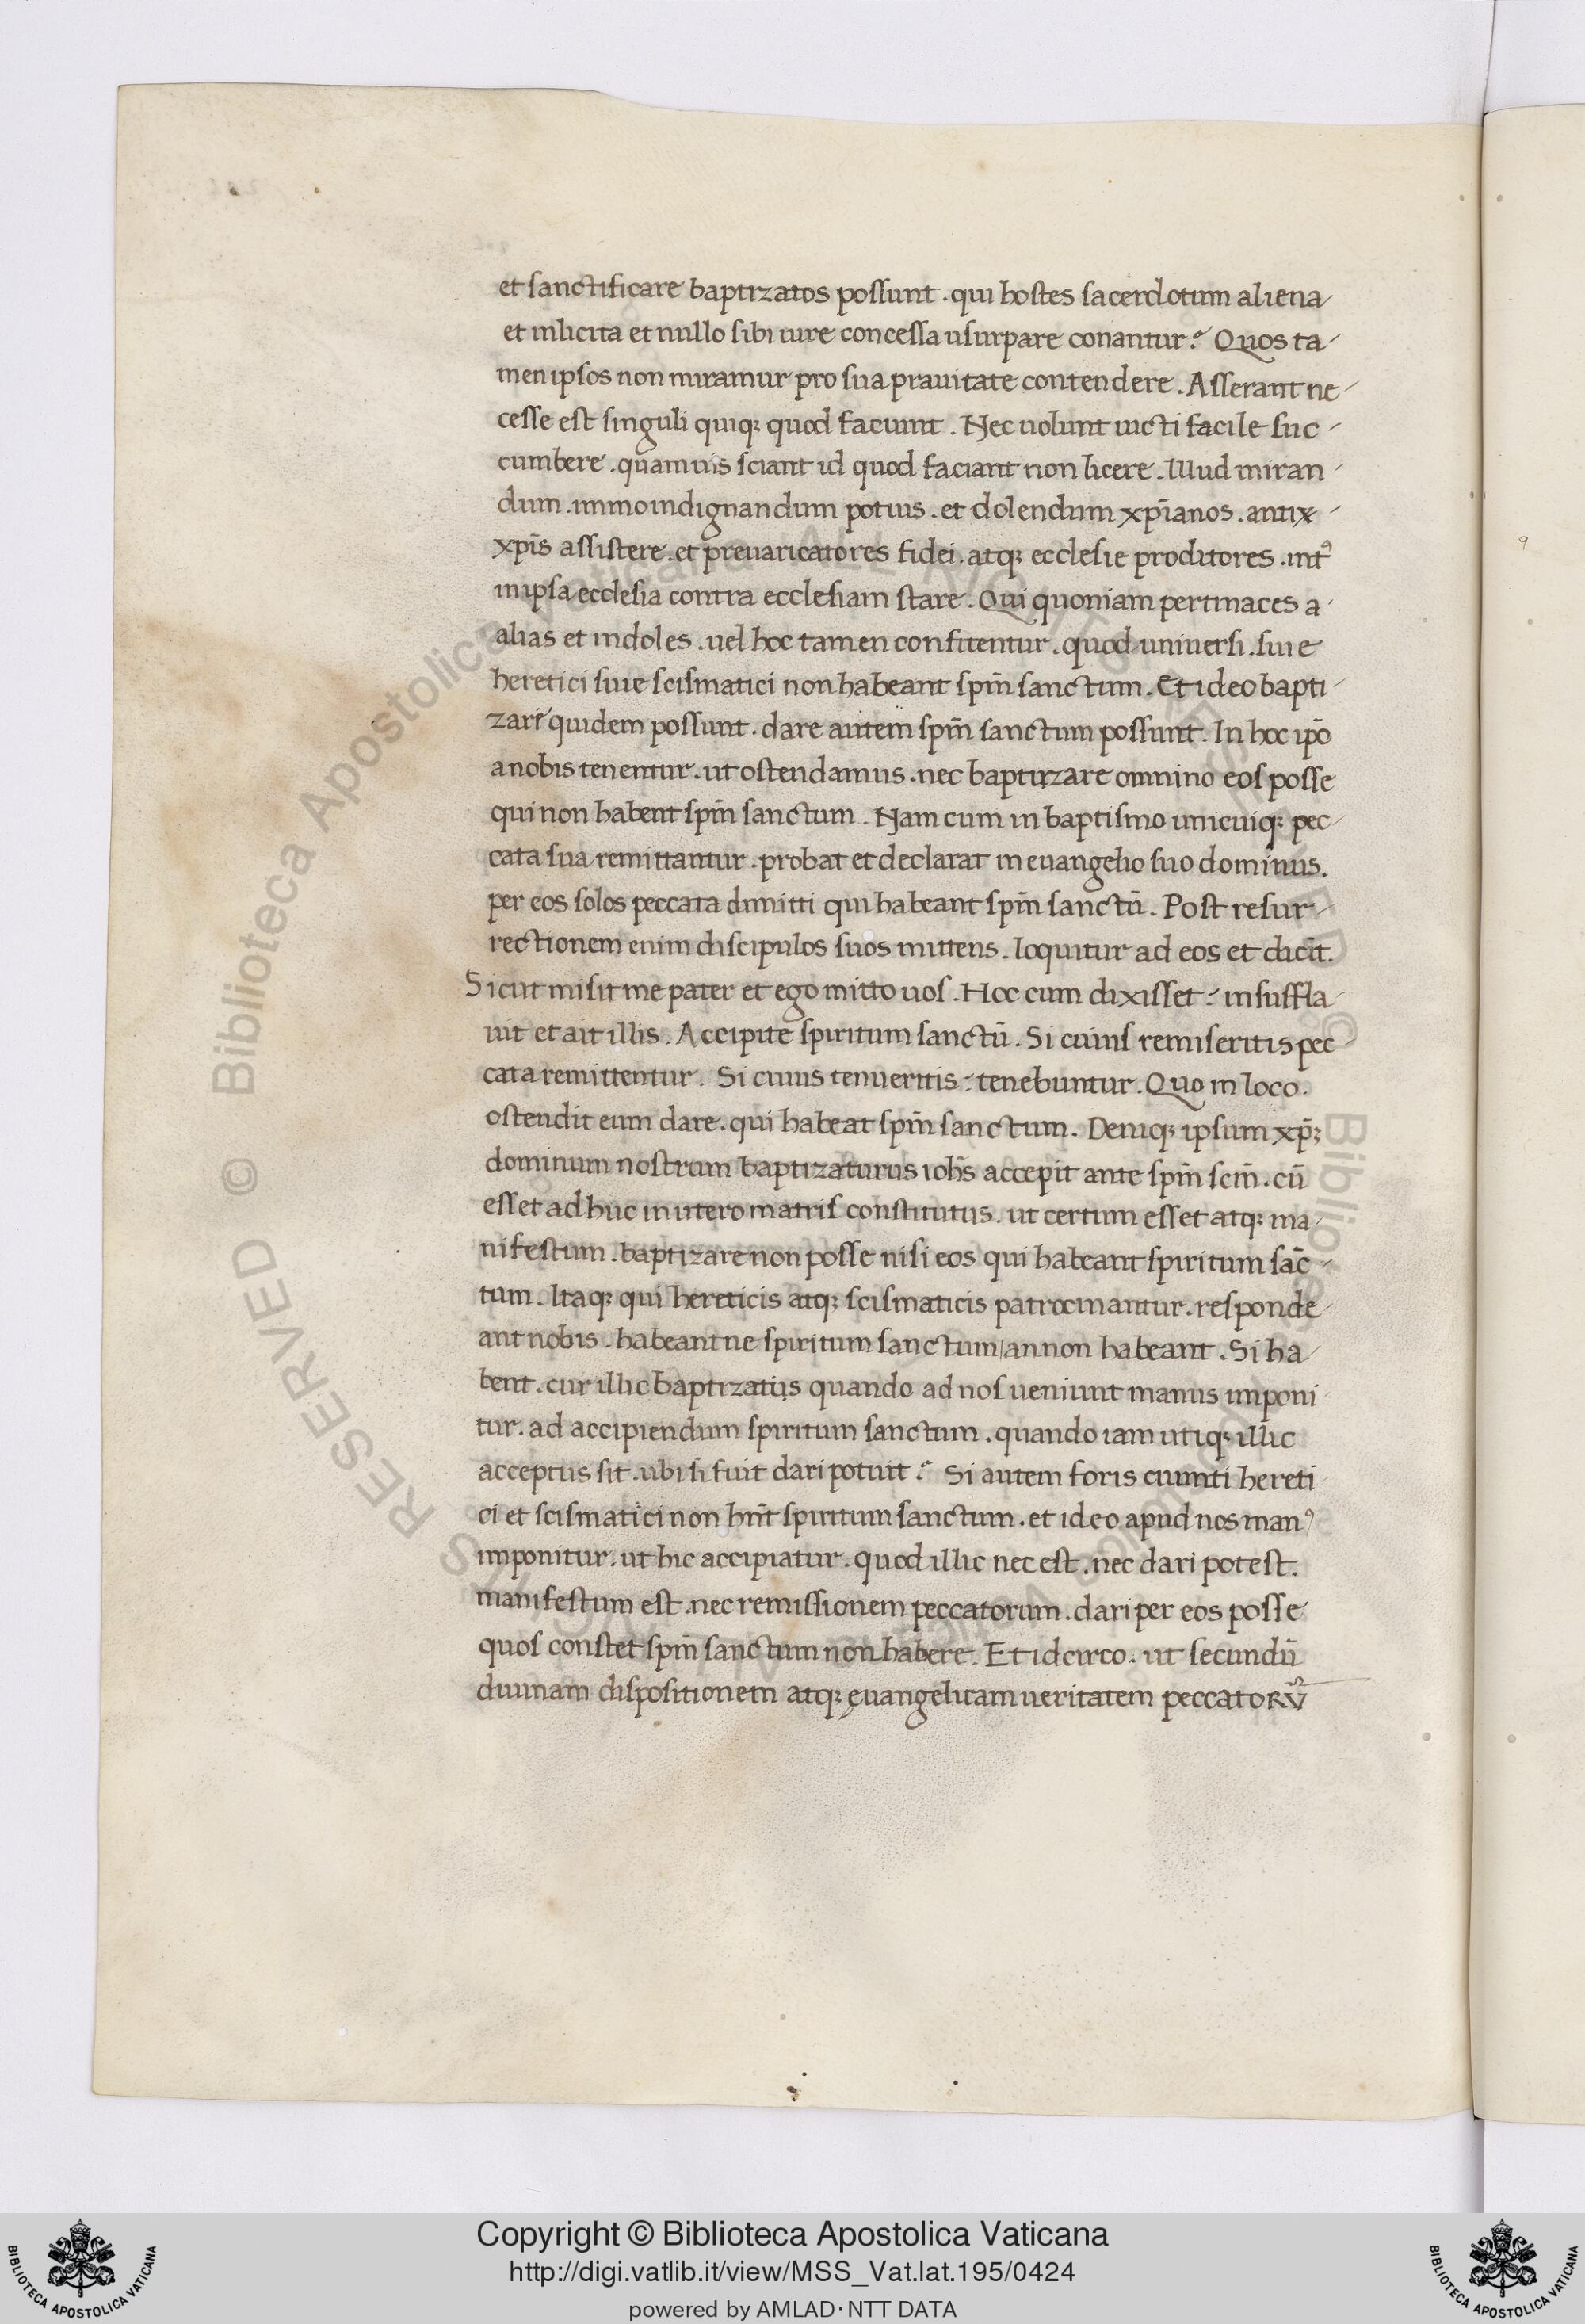 et sanctificare baptizatos possunt . qui hostes sacerdotum aliena
et inlicita et nullo sibi iure concessa usurpare conantur? Quos ta-
men ipsos non miramur pro sua prauitate contendere . Asserant ne-
cesse est singuli quiq; quod faciunt . Nec uolunt uicti facile suc-
cumbere . quamuis sciant id quod faciant non licere . Illud miran-
dum . immo indignandum potius . et dolendum xp̄ianos . antix-
xp̄is assistere . et preuaricatores fidei . atq; ecclesie proditores . intꝰ
in ipsa ecclesia contra ecclesiam stare . Qui quoniam pertinaces a-
alias et indoles . uel hoc tamen confitentur . quod uniuersi . siue
heretici siue scismatici non habeant sp̄m sanctum . Et ideo bapti-
zare quidem possunt . dare autem sp̄m sanctum possunt . In hoc ip̄o
a nobis tenentur . ut ostendamus . nec baptizare omnino eos posse
qui non habent sp̄m sanctum . Nam cum in baptismo unicuiq; pec-
cata sua remittantur . probat et declarat in euangelio suo dominus .
per eos solos peccata dimitti qui habeant sp̄m sanctū . Post resur-
rectionem enim discipulos suos mittens . loquitur ad eos et dicit .
Sicut misit me pater et ego mitto uos . Hoc cum dixisset : insuffla-
uit et ait illis . Accipite spiritum sanctū . Si cuius remiseritis pec-
cata remittentur . Si cuius tenueritis : tenebuntur . Quo in loco .
ostendit eum dare . qui habeat sp̄m sanctum . Deniq; ipsum xp̄ꝫ
dominum nostrum baptizaturus ioh̄s accepit ante sp̄m sc̄m . cū
esset adhuc in utero matris constitutus . ut certum esset atq; ma-
nifestum . baptizare non posse nisi eos qui habeant spiritum sāc-
tum . Itaq; qui hereticis atq; scismaticis patrocinantur . responde-
ant nobis . habeant ne spiritum sanctum / an non habeant . Si ha-
bent . cur illic baptizatis quando ad nos ueniunt manus imponi-
tur . ad accipiendum spiritum sanctum . quando iam utiq; illic
acceptus sit . ubi si fuit dari potuit ? Si autem foris cuinti hereti
ci et scismatici non hn̄t spiritum sanctum . et ideo apud nos manꝰ
imponitur . ut hic accipiatur . quod illic nec est . nec dari potest .
manifestum est . nec remissionem peccatorum . dari per eos posse
quos constet sp̄m sanctum non habere . Et idcirco . ut secundū
diuinam dispositionem atq; euangelicam ueritatem peccatorū
9
Copyright © Biblioteca Apostolica Vaticana
http://digi.vatlib.it/view/MSS_Vat.lat.195/0424
powered by AMLAD · NTT DATA
BIBLIOTECA APOSTOLICA VATICANA
BIBLIOTECA APOSTOLICA VATICANA